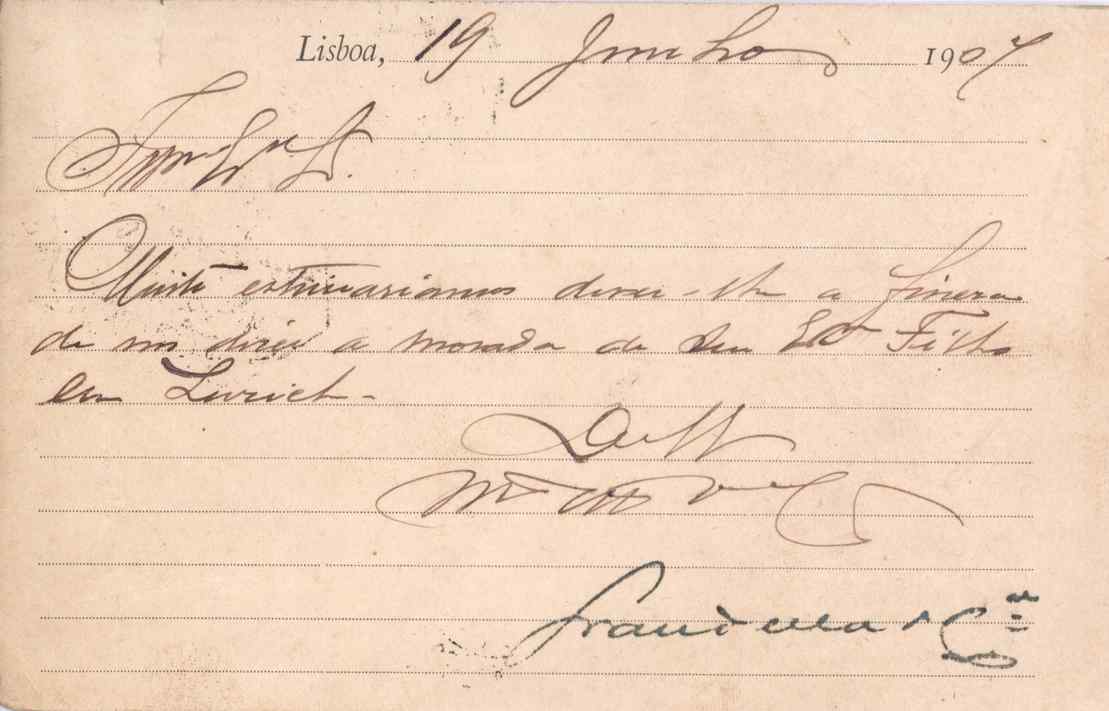 Lisboa, 19 Junho 1907
Illmo Exmo Sr.
Muito estimariamos dever-lhe a fineza
de nos dizer a morada de Seu Exmo Filho
em Zurich -
De V.
Mto Atts Ven
Grandella & Cia